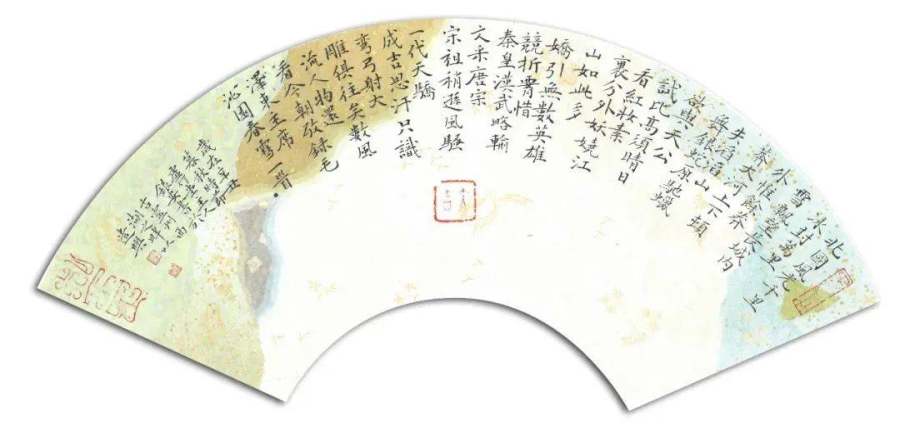 北國風光千里
冰封萬里
雪飄望長城內
外惟餘莽
莽大河上下頓
失滔滔山
舞銀蛇原馳蠟
象欲與天公
試比高須晴日
看紅妝素
裹分外妖嬈江
山如此多
嬌引無數英雄
競折腰惜
秦皇漢武略輸
文采唐宗
宋祖稍遜風騷
一代天驕
成吉思汗只識
彎弓射大
雕俱往矣數風
流人物還
看今朝敬録毛
澤東主席
沁園春雪一首
歲在辛丑